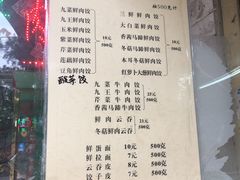 按500克计
九菜鲜肉饺
九王鲜肉饺
玉米鲜肉饺
紫菜鲜肉饺
芹菜鲜肉饺
莲藕鲜肉饺
豆角鲜肉饺
18元
500克
三鲜鲜肉饺
大白菜鲜肉饺
香茜马蹄鲜肉饺
冬菇马蹄鲜肉饺
木耳冬菇鲜肉饺
红萝卜大葱鲜肉饺
20元
500克
九菜牛肉饺
九王牛肉饺
芹菜牛肉饺
香茜马蹄牛肉饺
25元
500克
鲜肉云吞
冬菇鲜肉云吞
23元
500克
鲜蛋面 10元 500克
鲜拉面 7元 500克
云吞皮 8元 500克
饺子皮 7元 500克